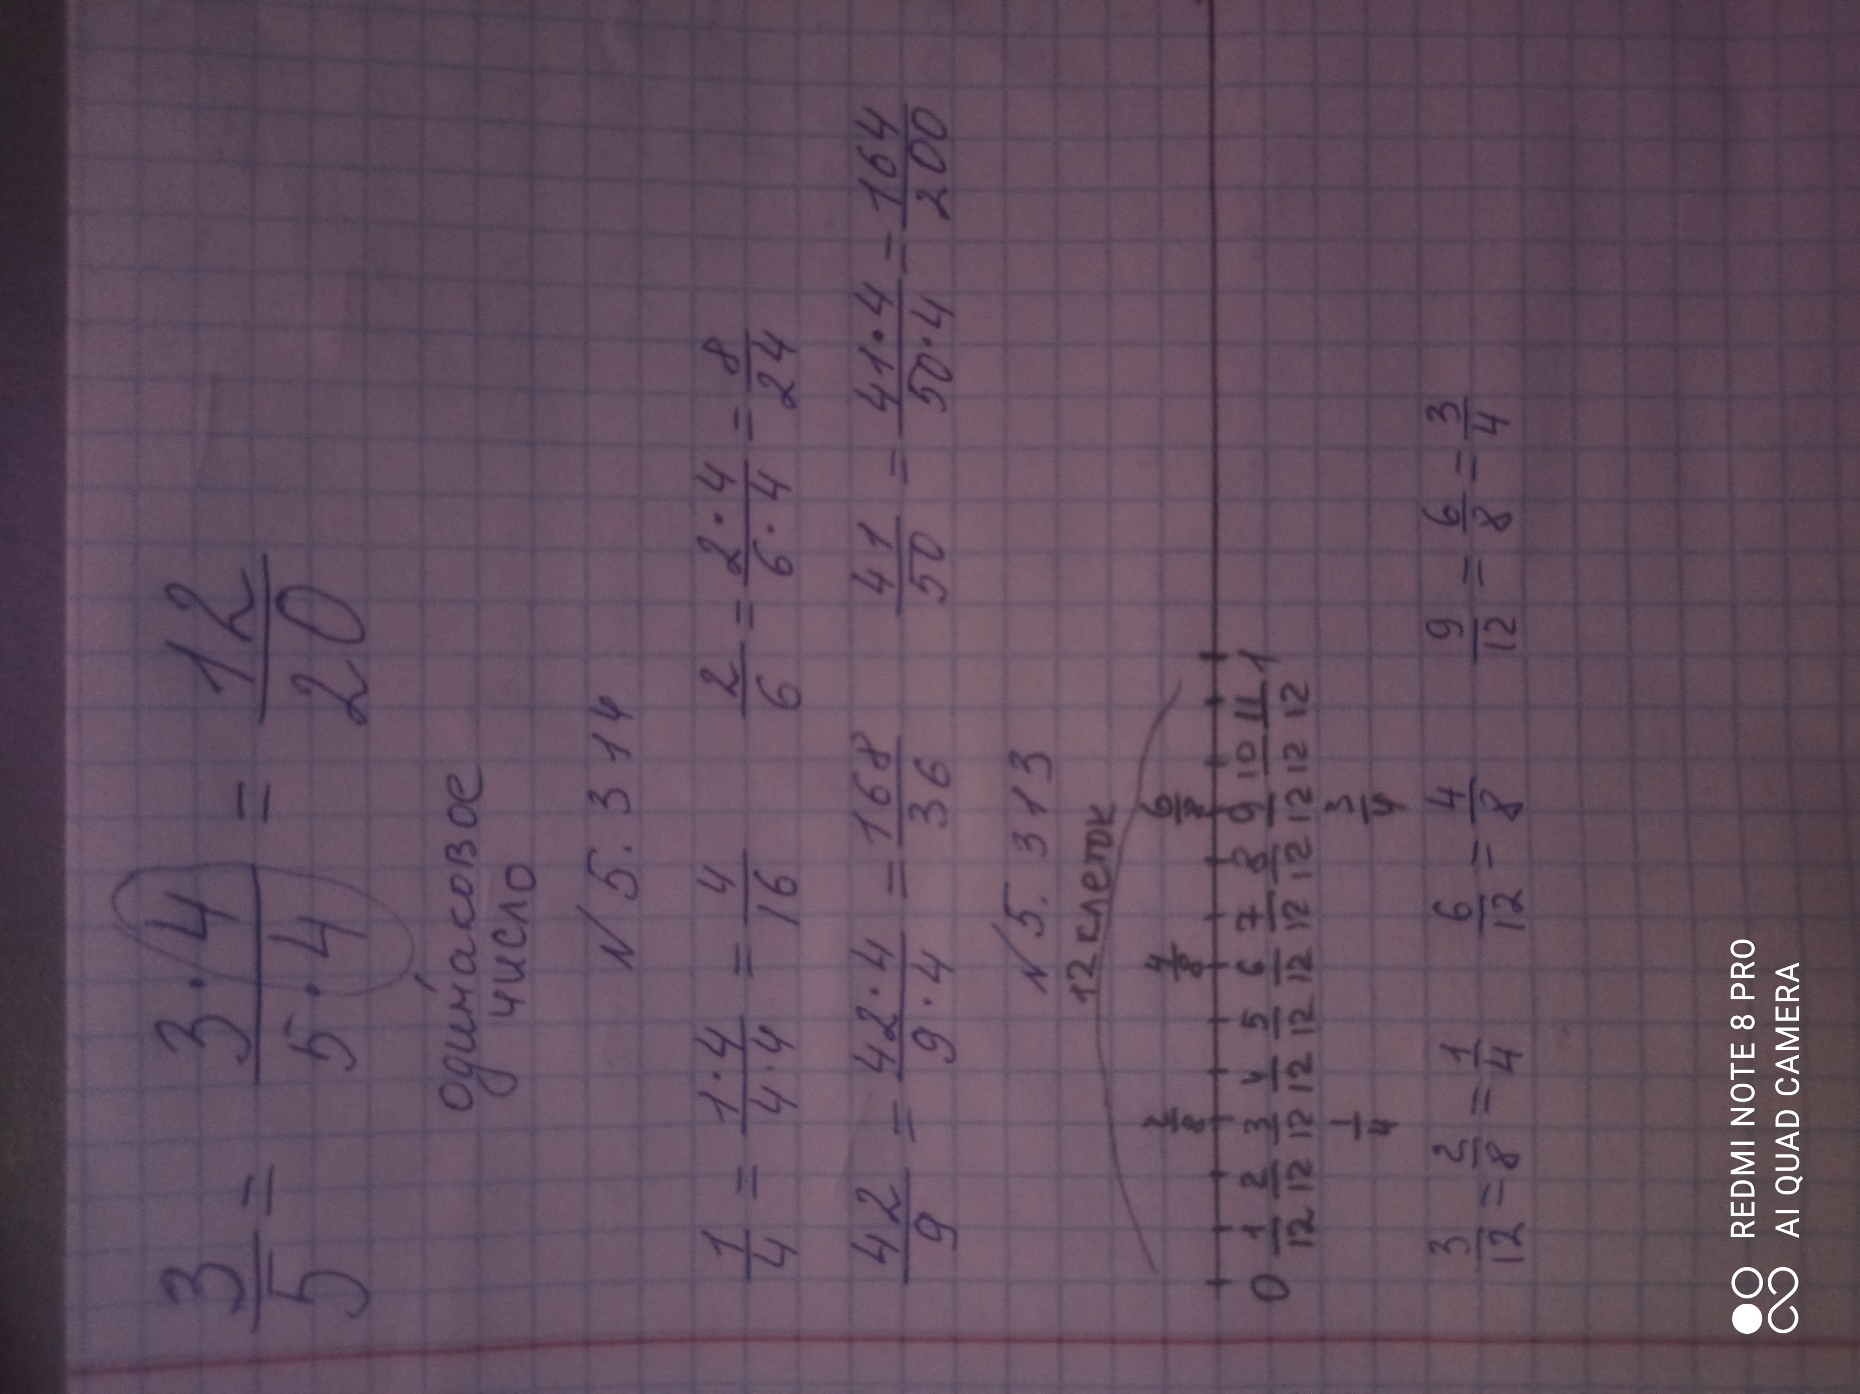 3/5 = 3·4/5·4 = 12/20
одинаковое
число
N 5.314
1/4 = 1·4/4·4 = 4/16 2/6 = 2·4/6·4 = 8/24
42/9 = 42·4/9·4 = 168/36 41/50 = 41·4/50·4 = 164/200
N 5.313
12 клеток
2/8 4/8 6/8
0 1/12 2/12 3/12 4/12 5/12 6/12 7/12 8/12 9/12 10/12 11/12 1
1/4 3/4
3/12 = 2/8 = 1/4 6/12 = 4/8 9/12 = 6/8 = 3/4
REDMI NOTE 8 PRO
AI QUAD CAMERA